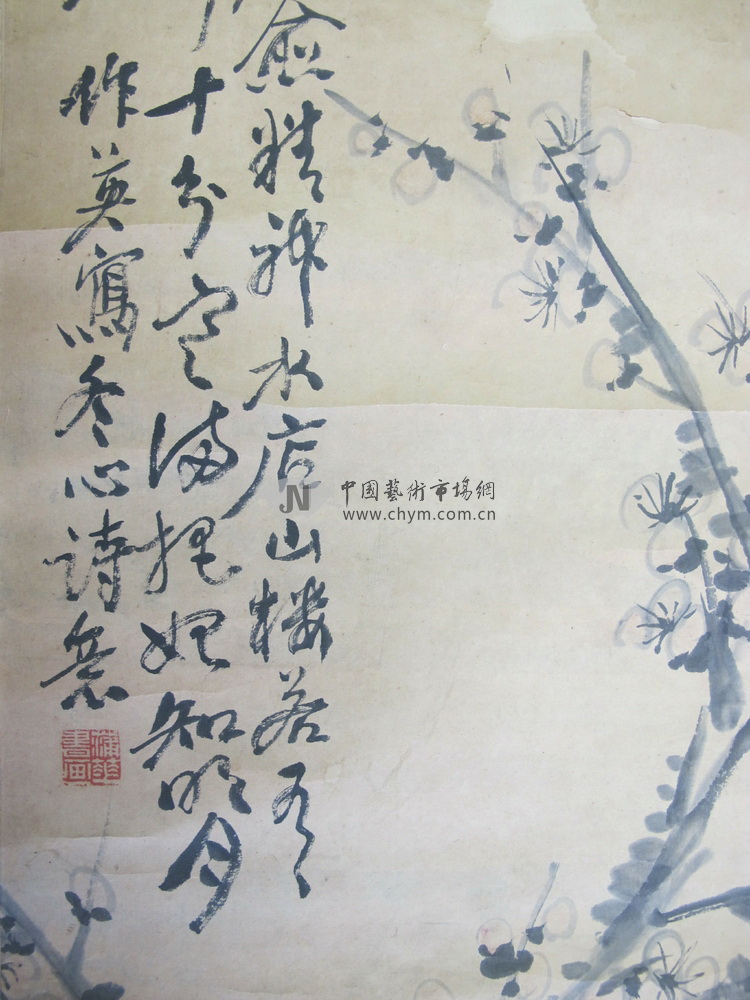 愈精神水店山樓若有
十分寒滿把始知明月
作英寫冬心詩意
蒲華書畫
JN
中國藝術市場網
www.chym.com.cn